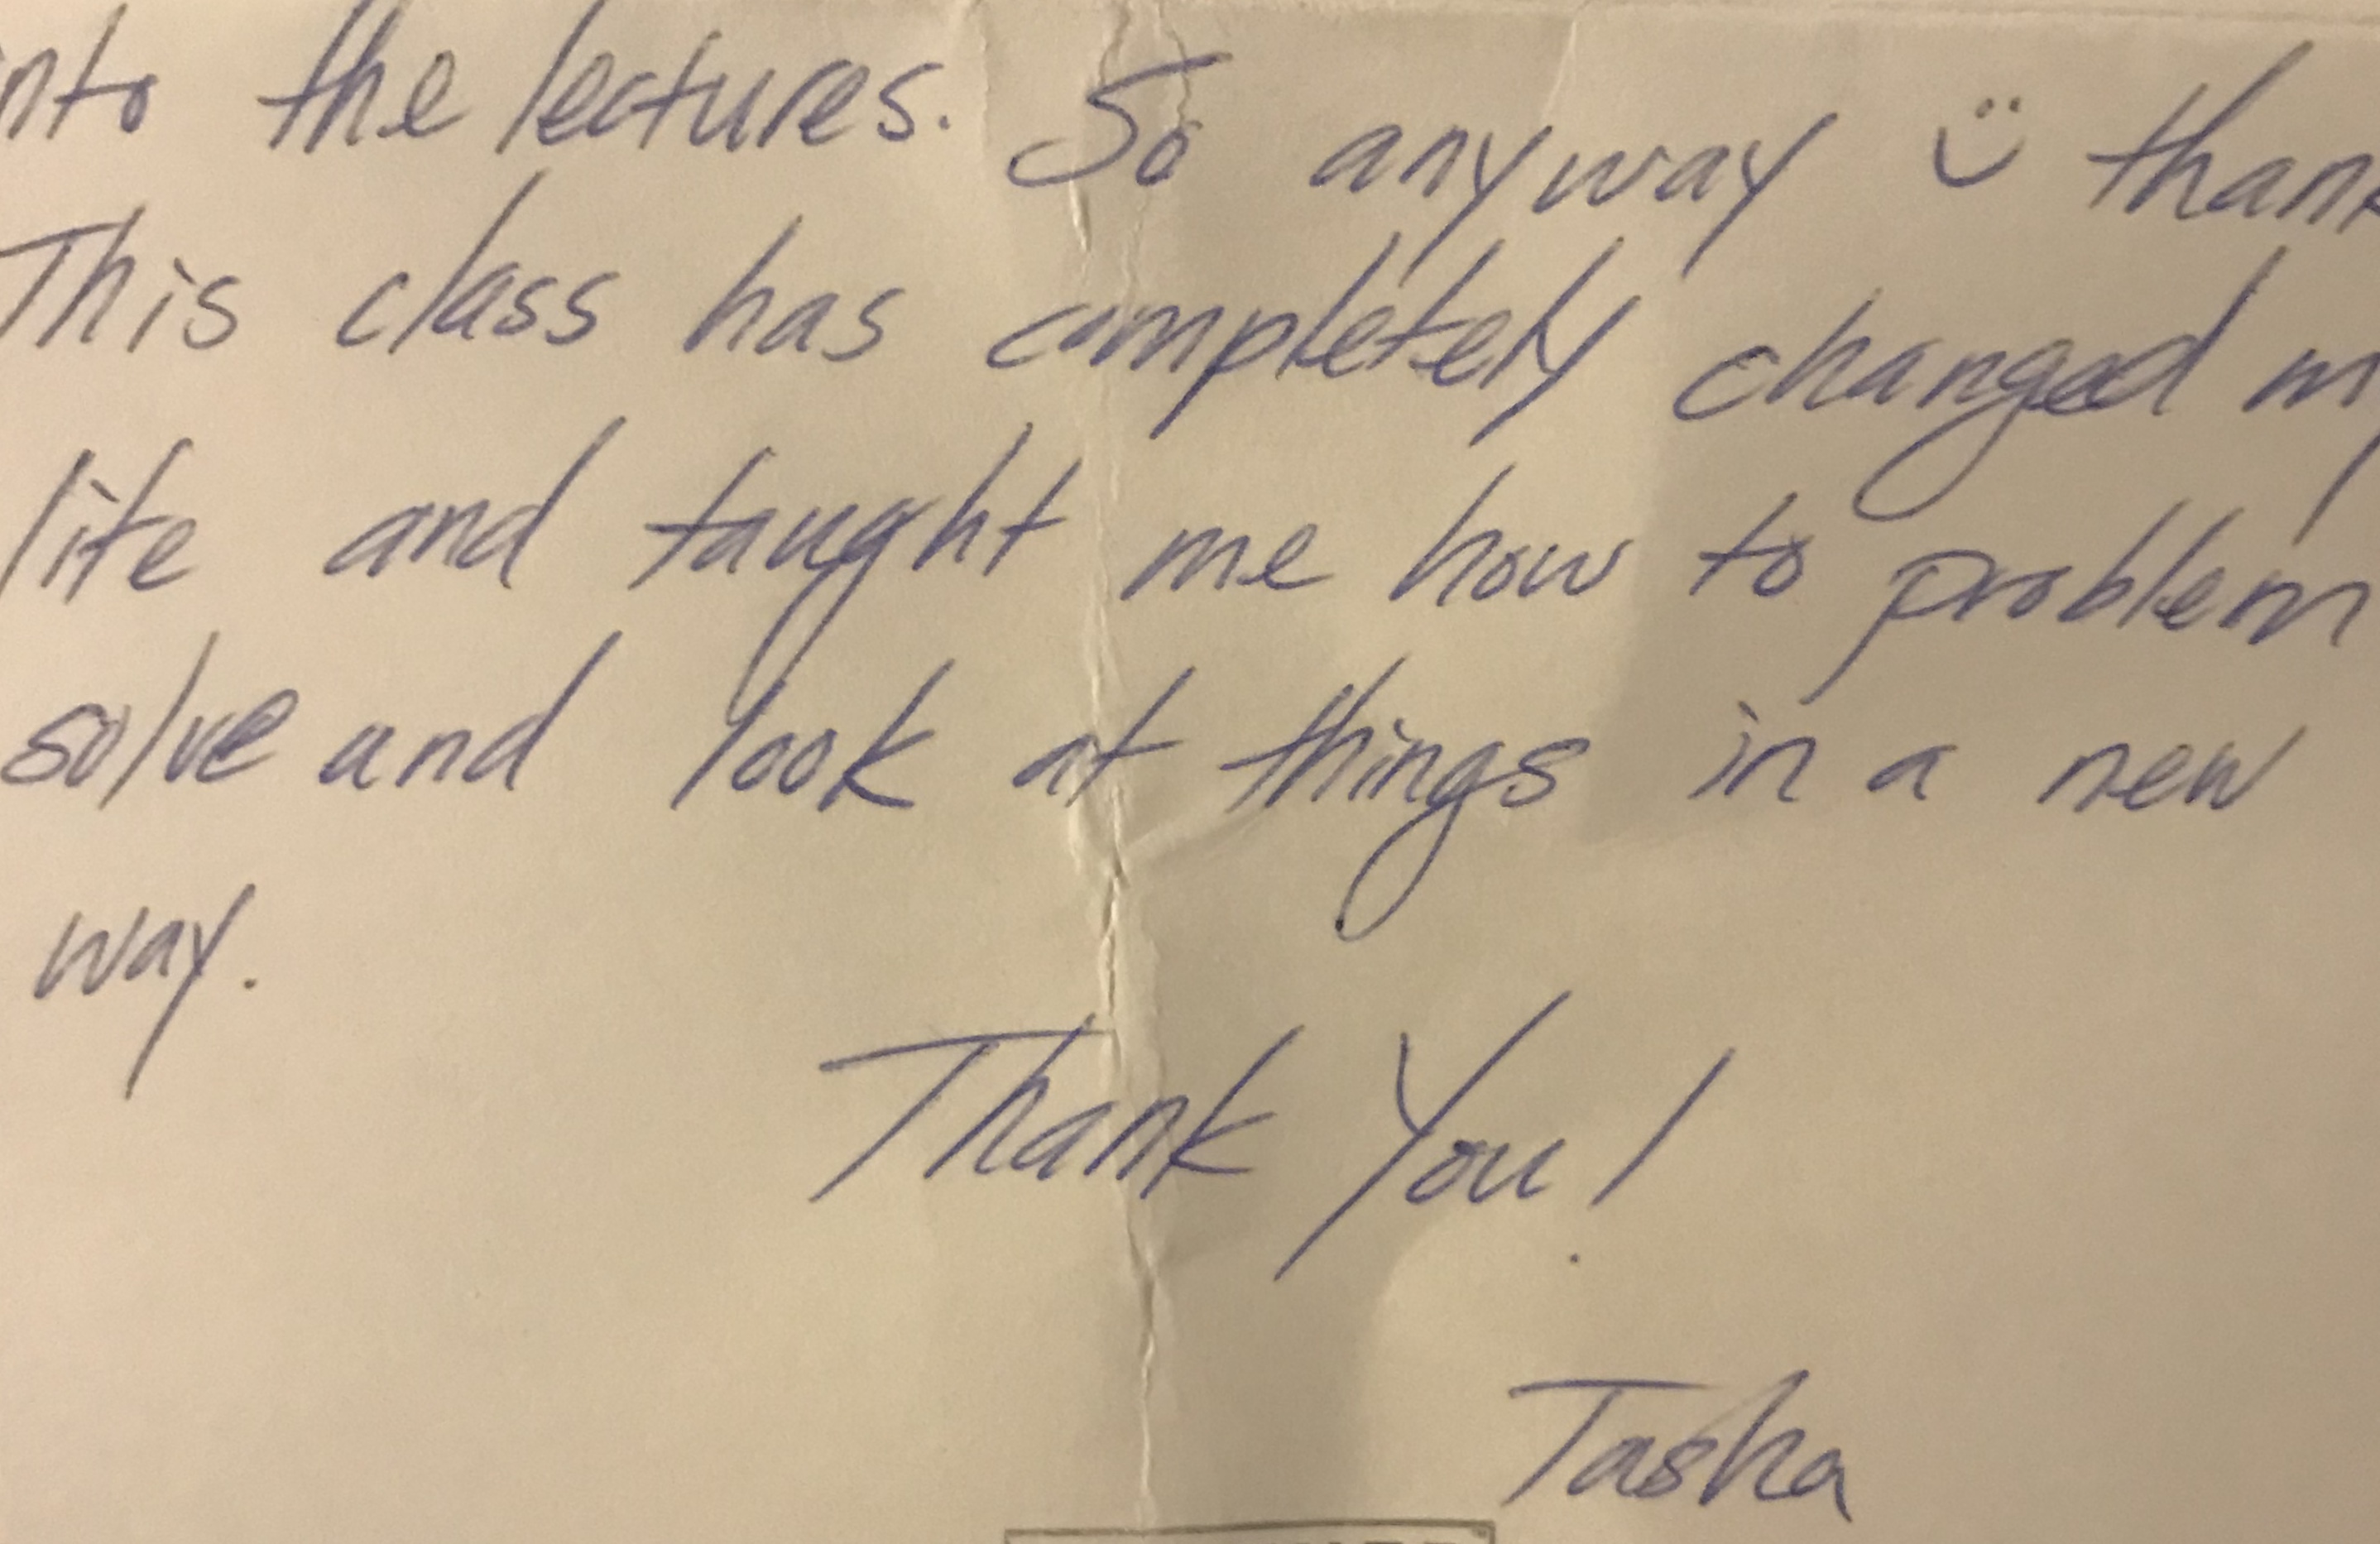 nto the lectures. So anyway :) thank
This class has completely changed my
life and taught me how to problem
solve and look at things in a new
way.
Thank You!
Tasha